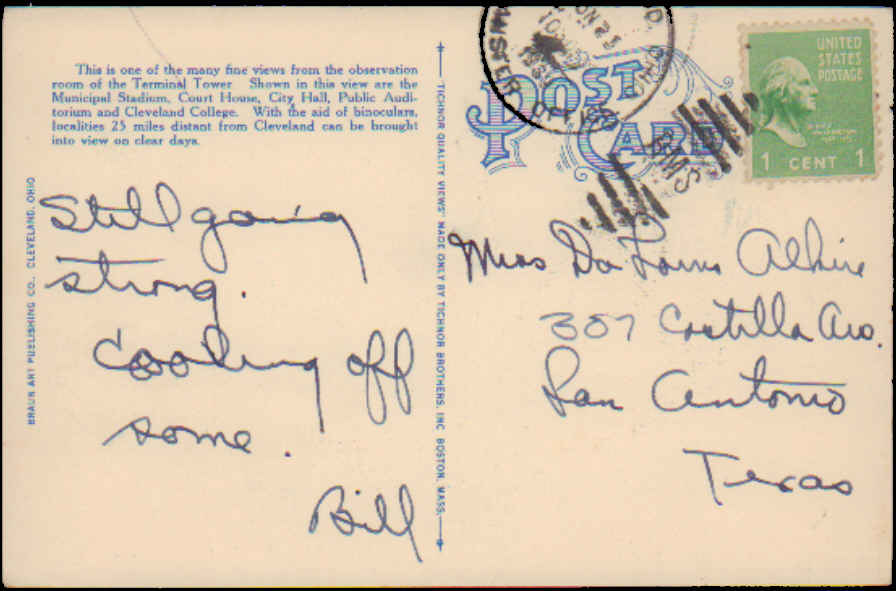 This is one of the many fine views from the observation
room of the Terminal Tower Shown in this view are the
Municipal Stadium, Court House, City Hall, Public Audi-
torium and Cleveland College. With the aid of binoculars,
localities 25 miles distant from Cleveland can be brought
into view on clear days.
BRAUN ART PUBLISHING CO., CLEVELAND, OHIO
Still going
strong.
Cooling off
some.
Bill
TICHNOR QUALITY VIEWS' MADE ONLY BY TICHNOR BROTHERS, INC BOSTON, MASS.
POST
CARD
UNITED
STATES
POSTAGE
1 CENT 1
OHIO
RMS
Miss
307 Castilla
San Antonio
Texas